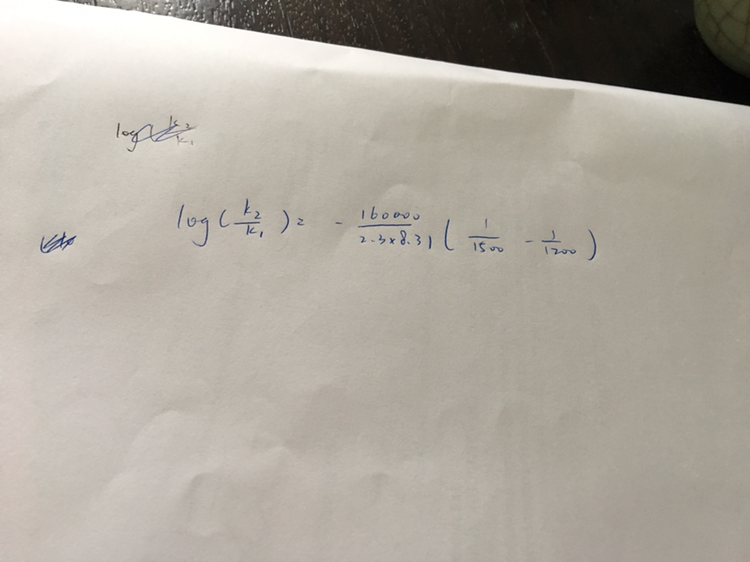 log(k₂/k₁
log(k₂/k₁) = - 160000/2.3×8.31 (1/1500 - 1/1200)